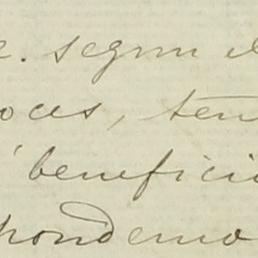 e. segun el
oces, ten
beneficio
pondemo